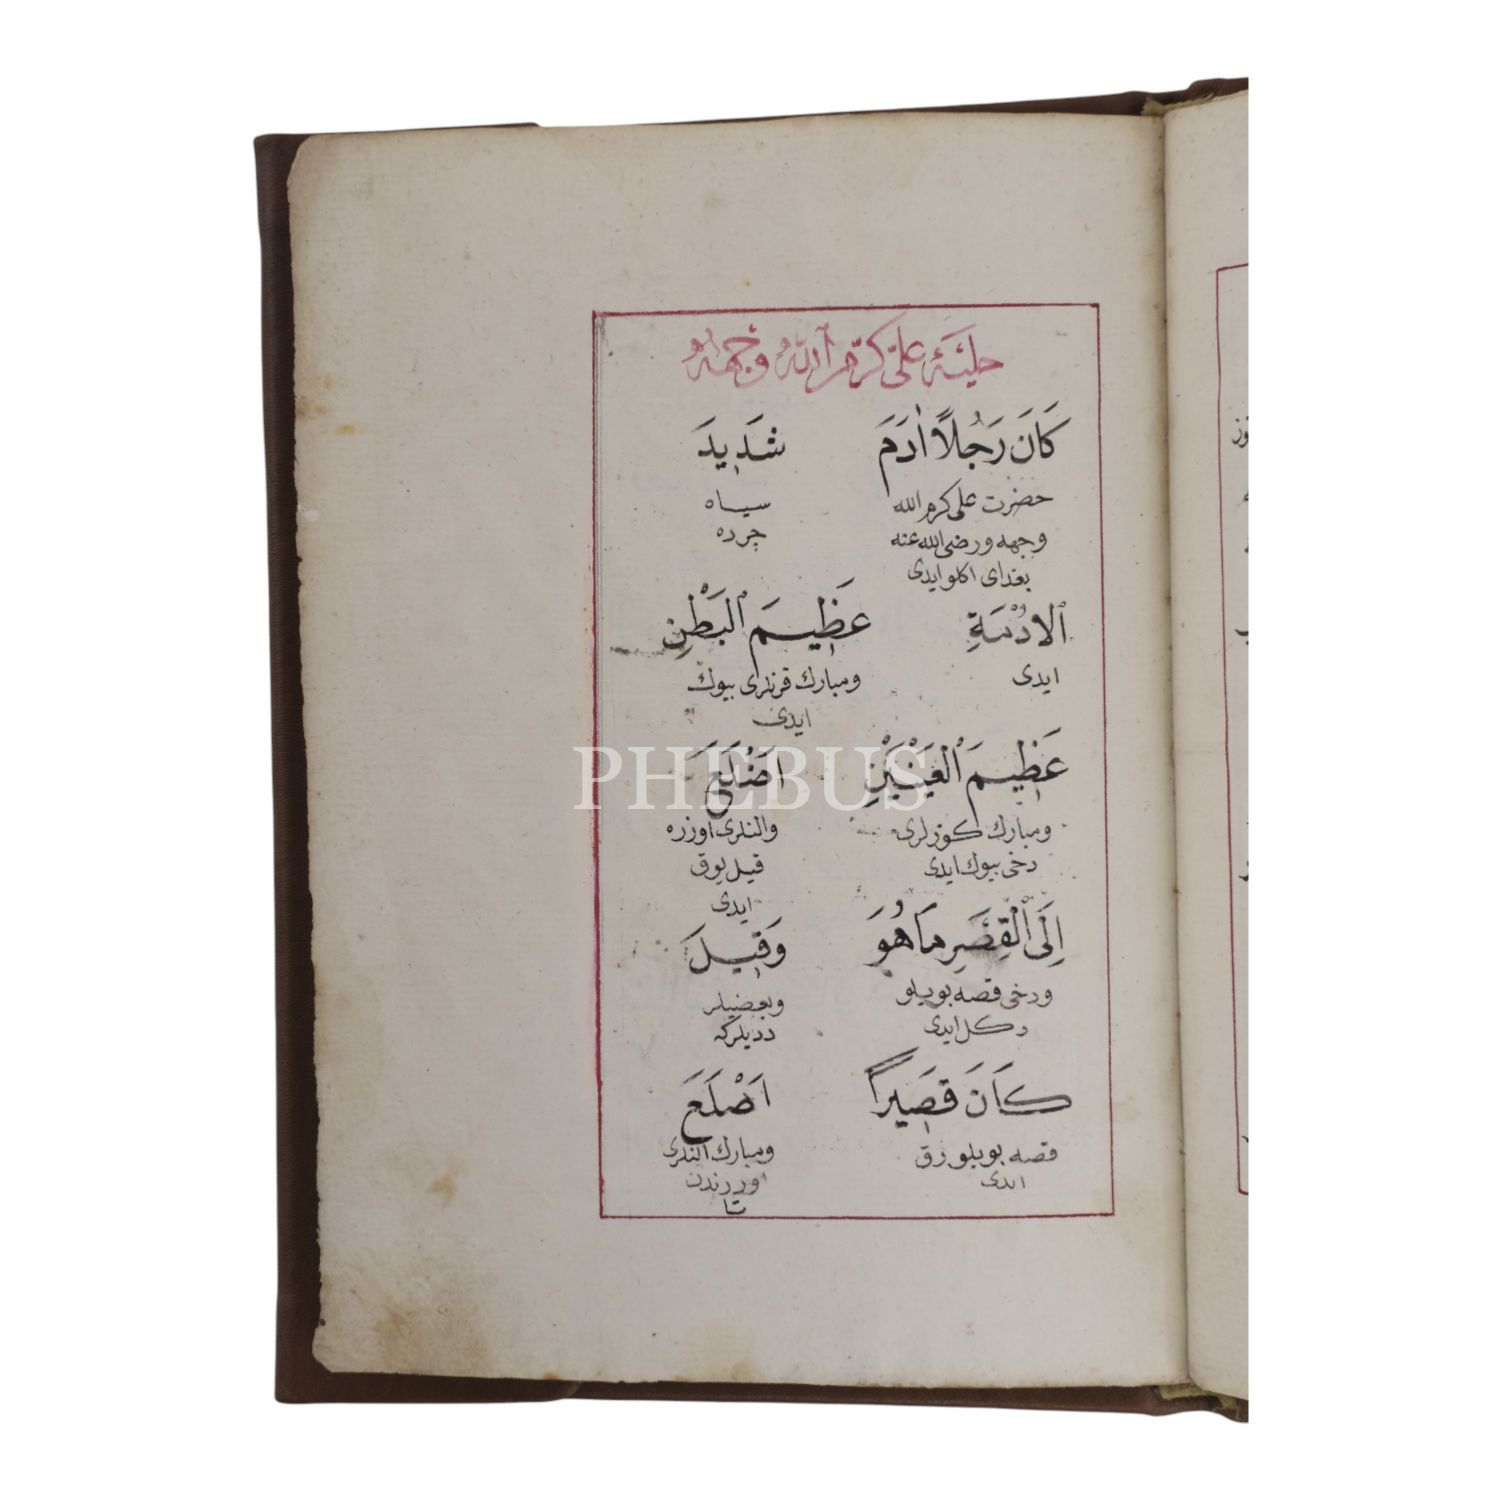 حلیۀ علیّ كرّم الله وجهه
كَانَ رَجُلًا اٰدَمَ شَدٖيدَ
حضرت علی كرم الله سیاه
وجهه ورضی الله عنه چرده
بغدای اكلو ایدی
الْاُدْمَةِ عَظٖيمَ الْبَطْنِ
ایدی ومبارك قرنلری بیوك
ایدی
عَظٖيمَ الْعَيْنَيْنِ اَصْلَعَ
ومبارك كوزلری والنلری اوزره
دخی بیوك ایدی قیل یوق
ایدی
اِلَى الْقِصَرِ مَا هُوَ وَقٖيلَ
ودخی قصه بویلو وبعضیلر
دكل ایدی ددیلركه
كَانَ قَصٖيرًا اَصْلَعَ
قصه بویلورق ومبارك النلری
ایدی اوزرندن
تا
PHEBUS